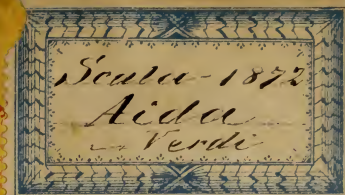 Scala - 1872
Aida
Verdi